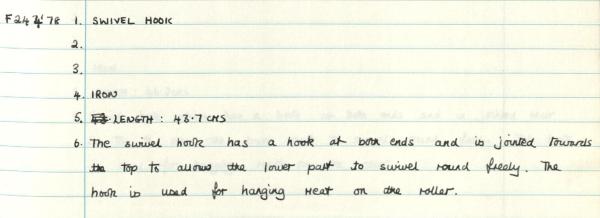 F 24 4 78 1. SWIVEL HOOK
2.
3.
4. IRON
5. LENGTH : 43.7 CMS
6. The swivel hook has a hook at both ends and is jointed towards
the top to allow the lower part to swivel round freely. The
hook is used for hanging meat on the roller.